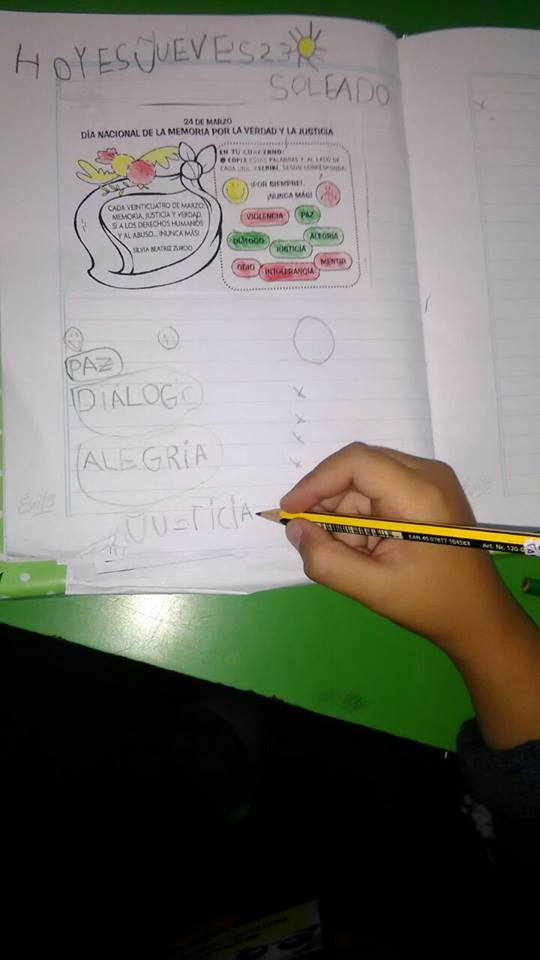 HOY ES JUEVES 23
SOLEADO
24 DE MARZO
DÍA NACIONAL DE LA MEMORIA POR LA VERDAD Y LA JUSTICIA
CADA VEINTICUATRO DE MARZO:
MEMORIA, JUSTICIA Y VERDAD.
SÍ A LOS DERECHOS HUMANOS
Y AL ABUSO... ¡NUNCA MÁS!
SILVIA BEATRIZ ZURDO
EN TU CUADERNO:
COPIÁ ESTAS PALABRAS Y AL LADO DE
CADA UNA, ESCRIBÍ, SEGÚN CORRESPONDA:
¡POR SIEMPRE!,
¡NUNCA MÁS!
VIOLENCIA PAZ
DIÁLOGO JUSTICIA ALEGRÍA
ODIO INTOLERANCIA MENTIR
PAZ
DIÁLOGO
ALEGRÍA
JUSTICIA
Éxito
EAN 40 07817 104583 Art. Nr. 120-